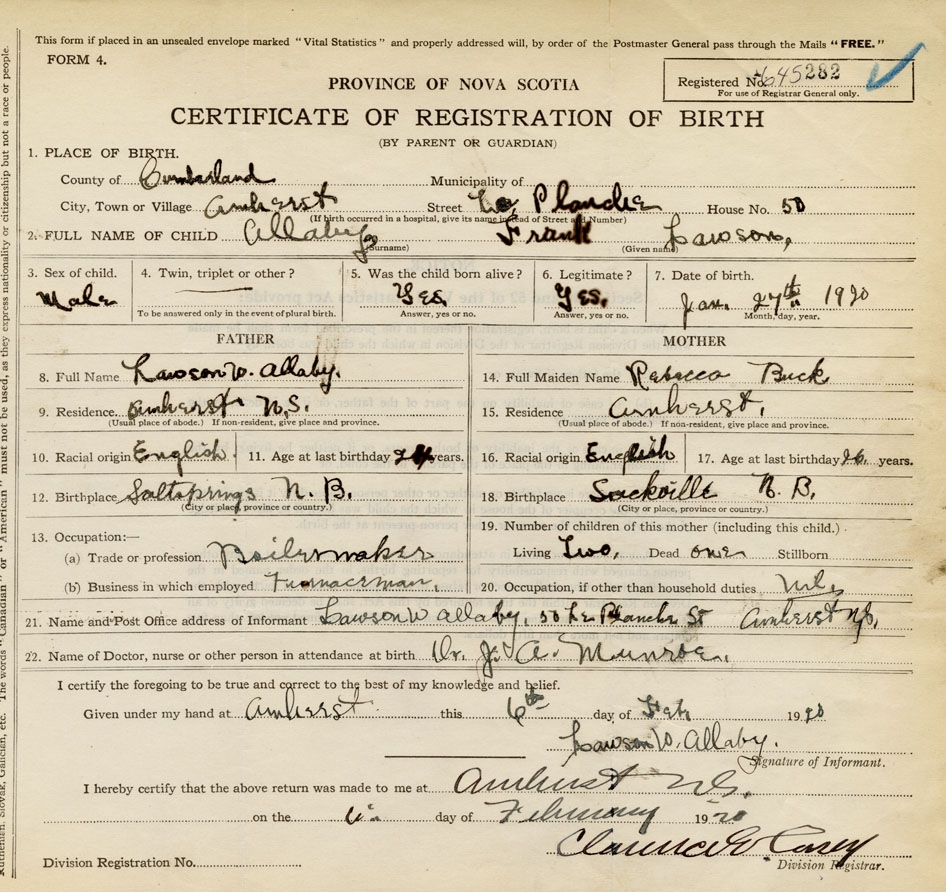 This form if placed in an unsealed envelope marked "Vital Statistics" and properly addressed will, by order of the Postmaster General pass through the Mails "FREE."
FORM 4.
Registered No. 645282
For use of Registrar General only.
PROVINCE OF NOVA SCOTIA
CERTIFICATE OF REGISTRATION OF BIRTH
(BY PARENT OR GUARDIAN)
1. PLACE OF BIRTH.
County of Cumberland Municipality of
City, Town or Village Amherst Street La Planche House No. 50
(If birth occurred in a hospital, give its name instead of Street and Number)
2. FULL NAME OF CHILD Allaby Frank Lawson,
(Surname) (Given name)
3. Sex of child. 4. Twin, triplet or other? 5. Was the child born alive? 6. Legitimate? 7. Date of birth.
Male Yes. Yes. Jan. 27th 1920
To be answered only in the event of plural birth. Answer, yes or no. Answer, yes or no. Month, day, year.
FATHER MOTHER
8. Full Name Lawson W. Allaby. 14. Full Maiden Name Rebecca Buck
9. Residence Amherst N.S. 15. Residence Amherst.
(Usual place of abode.) If non-resident, give place and province. (Usual place of abode.) If non-resident, give place and province.
10. Racial origin English 11. Age at last birthday years. 16. Racial origin English 17. Age at last birthday 26 years.
12. Birthplace Saltsprings N.B. 18. Birthplace Sackville N.B.
(City or place, province or country.) (City or place, province or country.)
13. Occupation:— 19. Number of children of this mother (including this child.)
(a) Trade or profession Boilermaker Living Two, Dead one Stillborn
(b) Business in which employed Furnaceman, 20. Occupation, if other than household duties
21. Name and Post Office address of Informant Lawson W Allaby, 50 La Planche St Amherst N.S.
22. Name of Doctor, nurse or other person in attendance at birth Dr. J. A. Munroe.
I certify the foregoing to be true and correct to the best of my knowledge and belief.
Given under my hand at Amherst this 6th day of Feb 1920
Lawson W. Allaby.
Signature of Informant.
I hereby certify that the above return was made to me at Amherst N.S.
on the 6th day of February 1920
Clarence E. Casey
Division Registration No. Division Registrar.
Ruthenian, Slovak, Galician, etc. The words "Canadian" or "American" must not be used, as they express nationality or citizenship but not a race or people.